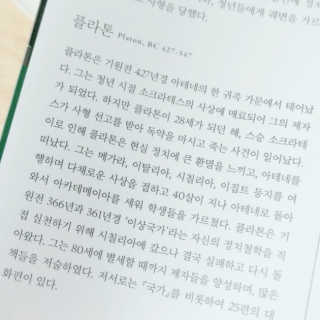 사형을 당했다.
청년들에게 궤변을 가르
플라톤 Platon, BC 427-347
플라톤은 기원전 427년경 아테네의 한 귀족 가문에서 태어났
다. 그는 청년 시절 소크라테스의 사상에 매료되어 그의 제자
가 되었다. 하지만 플라톤이 28세가 되던 해, 스승 소크라테
스가 사형 선고를 받아 독약을 마시고 죽는 사건이 일어났다.
이로 인해 플라톤은 현실 정치에 큰 환멸을 느끼고, 아테네를
떠났다. 그는 메가라, 이탈리아, 시칠리아, 이집트 등지를 여
행하며 다채로운 사상을 접하고 40살이 지나 아테네로 돌아
와서 아카데메이아를 세워 학생들을 가르쳤다. 플라톤은 기
원전 366년과 361년경 '이상국가'라는 자신의 정치철학을 직
접 실천하기 위해 시칠리아에 갔으나 결국 실패하고 다시 돌
아왔다. 그는 80세에 별세할 때까지 제자들을 양성하며, 많은
책들을 저술하였다. 저서로는 『국가』를 비롯하여 25편의 대
화편이 있다.